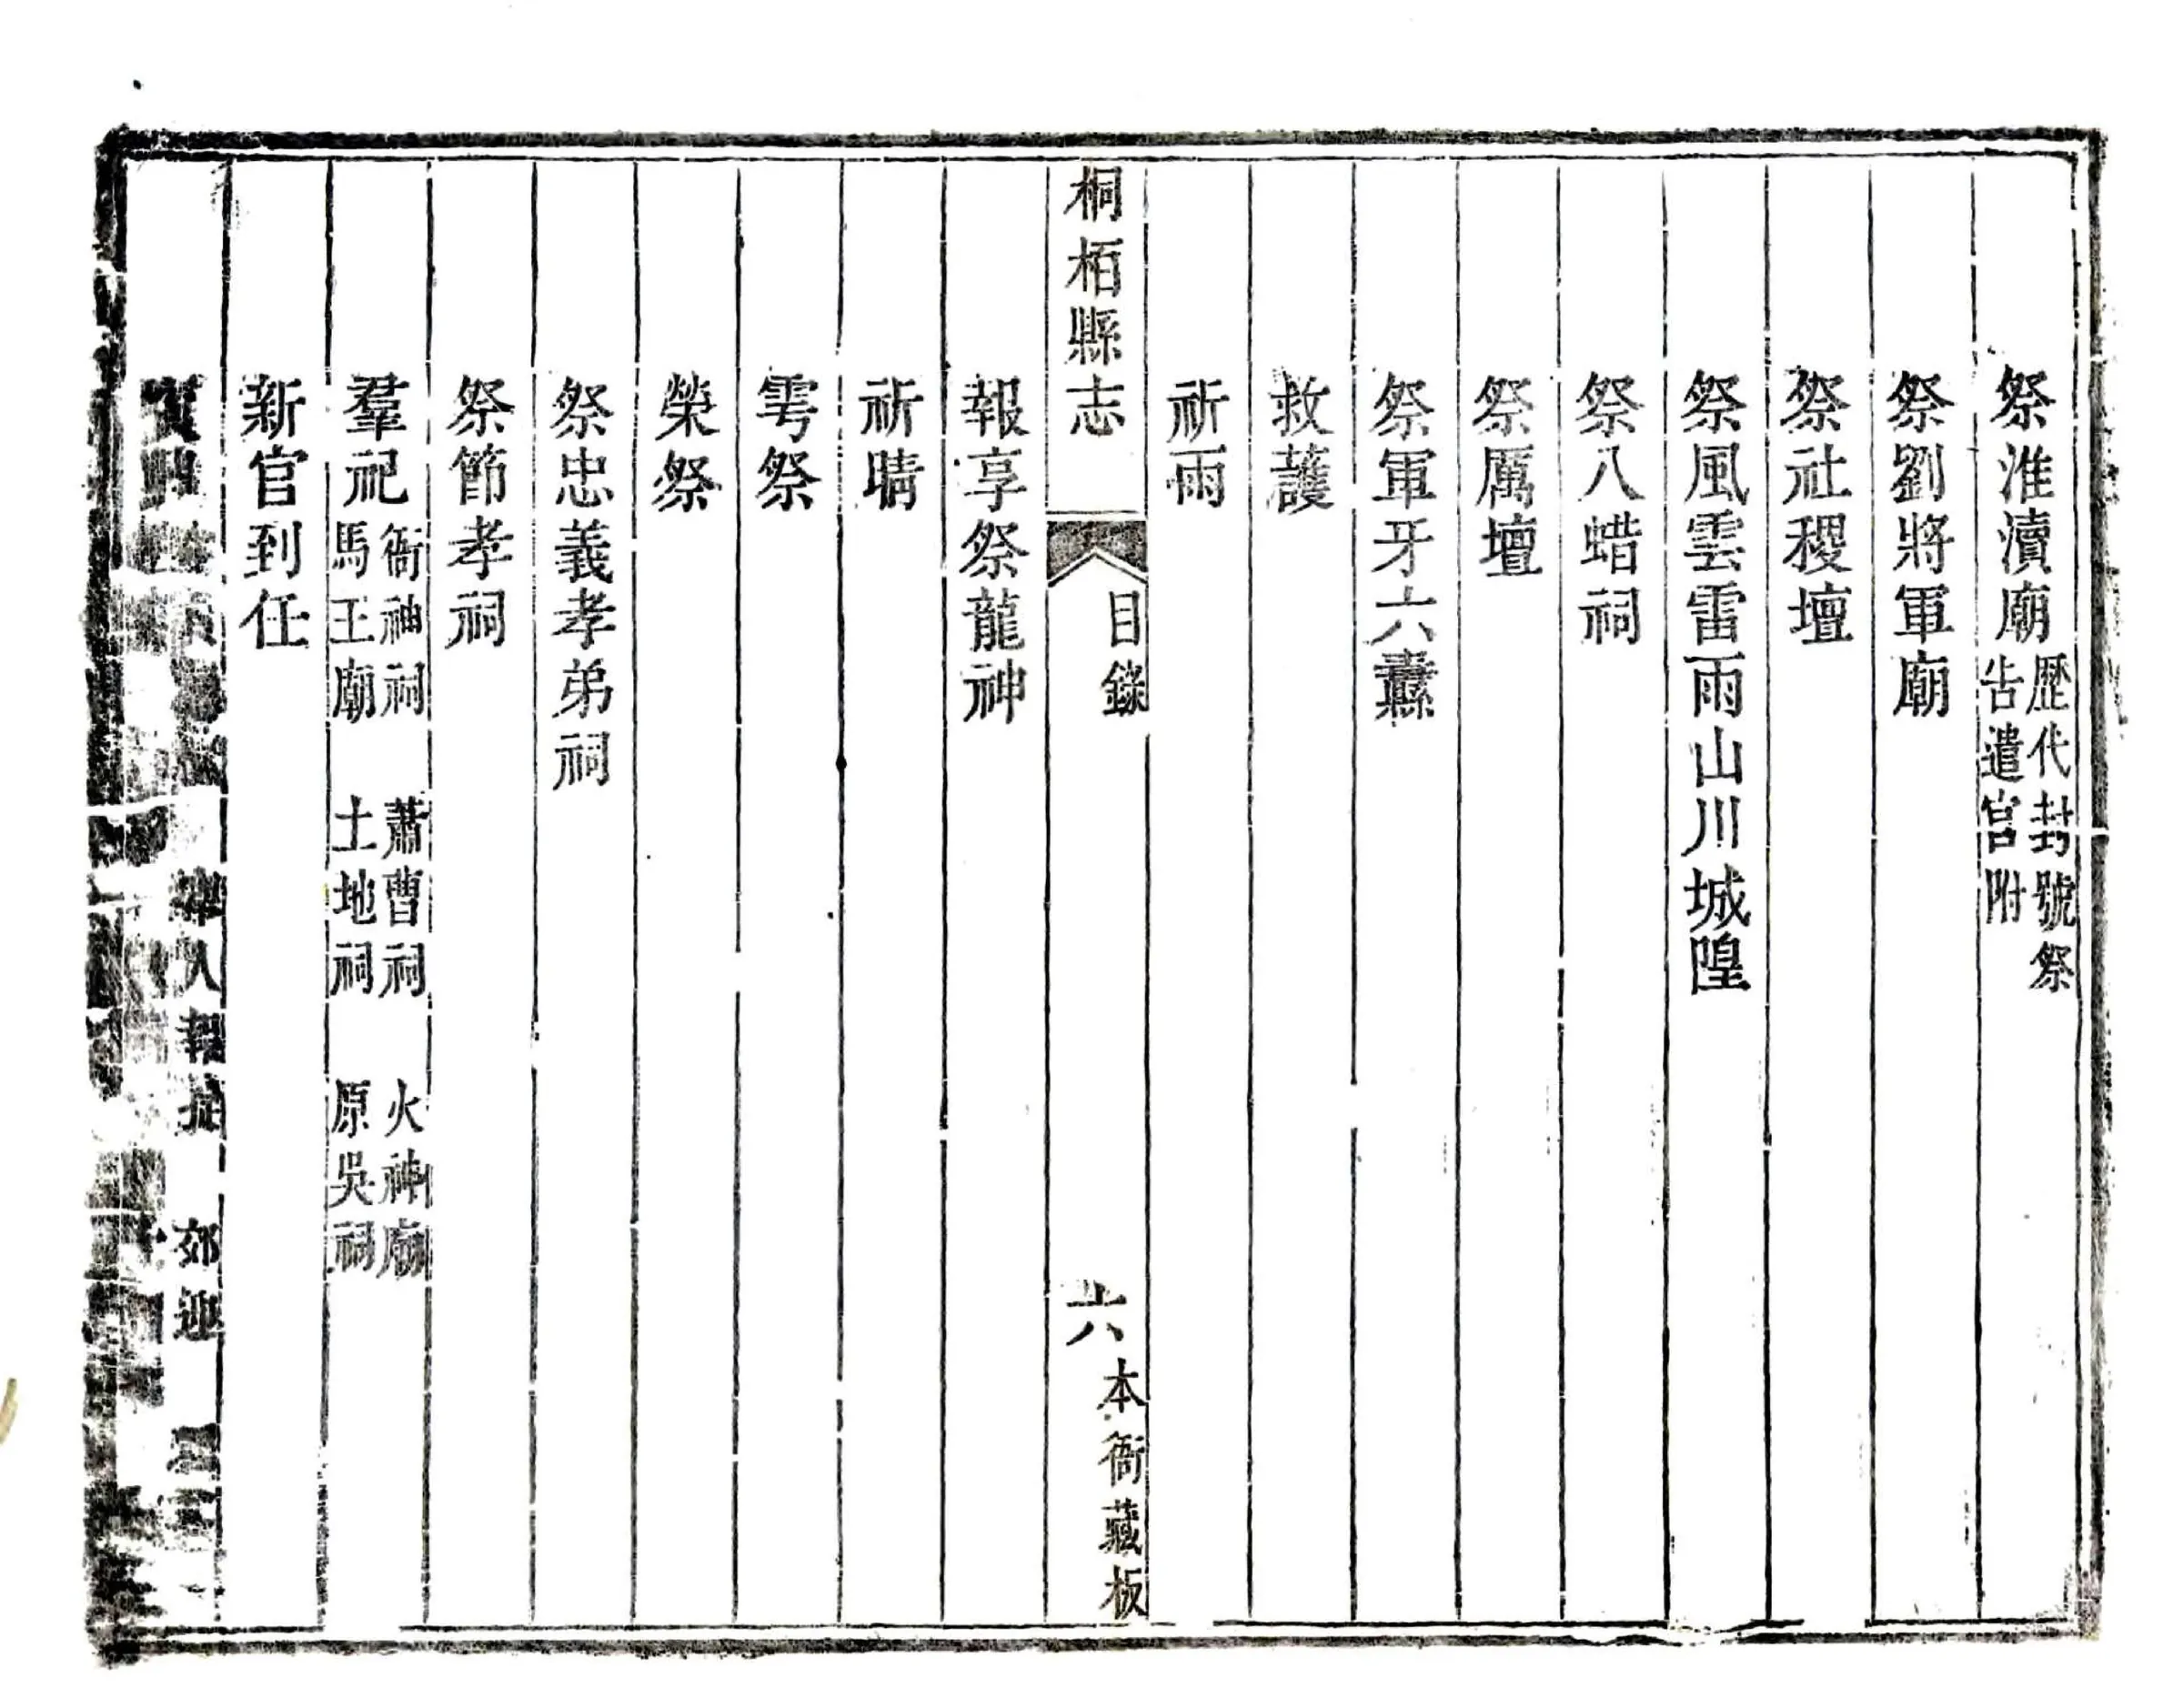 祭淮瀆廟歷代封號祭告遣官附
祭劉將軍廟
祭社稷壇
祭風雲雷雨山川城隍
祭八蜡祠
祭厲壇
祭軍牙六纛
救護
祈雨
桐栢縣志
目錄
六
本衙藏板
報享祭龍神
祈晴
雩祭
禜祭
祭忠義孝弟祠
祭節孝祠
羣祀衙神祠 蕭曹祠 火神廟
馬王廟 土地祠 原吳祠
新官到任
舉人報捷 郊迎